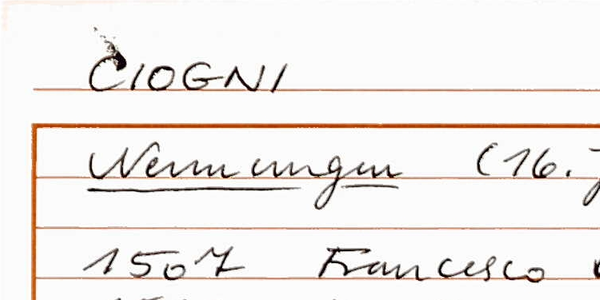 CIOGNI
Nennungen (16.
1507 Francesco